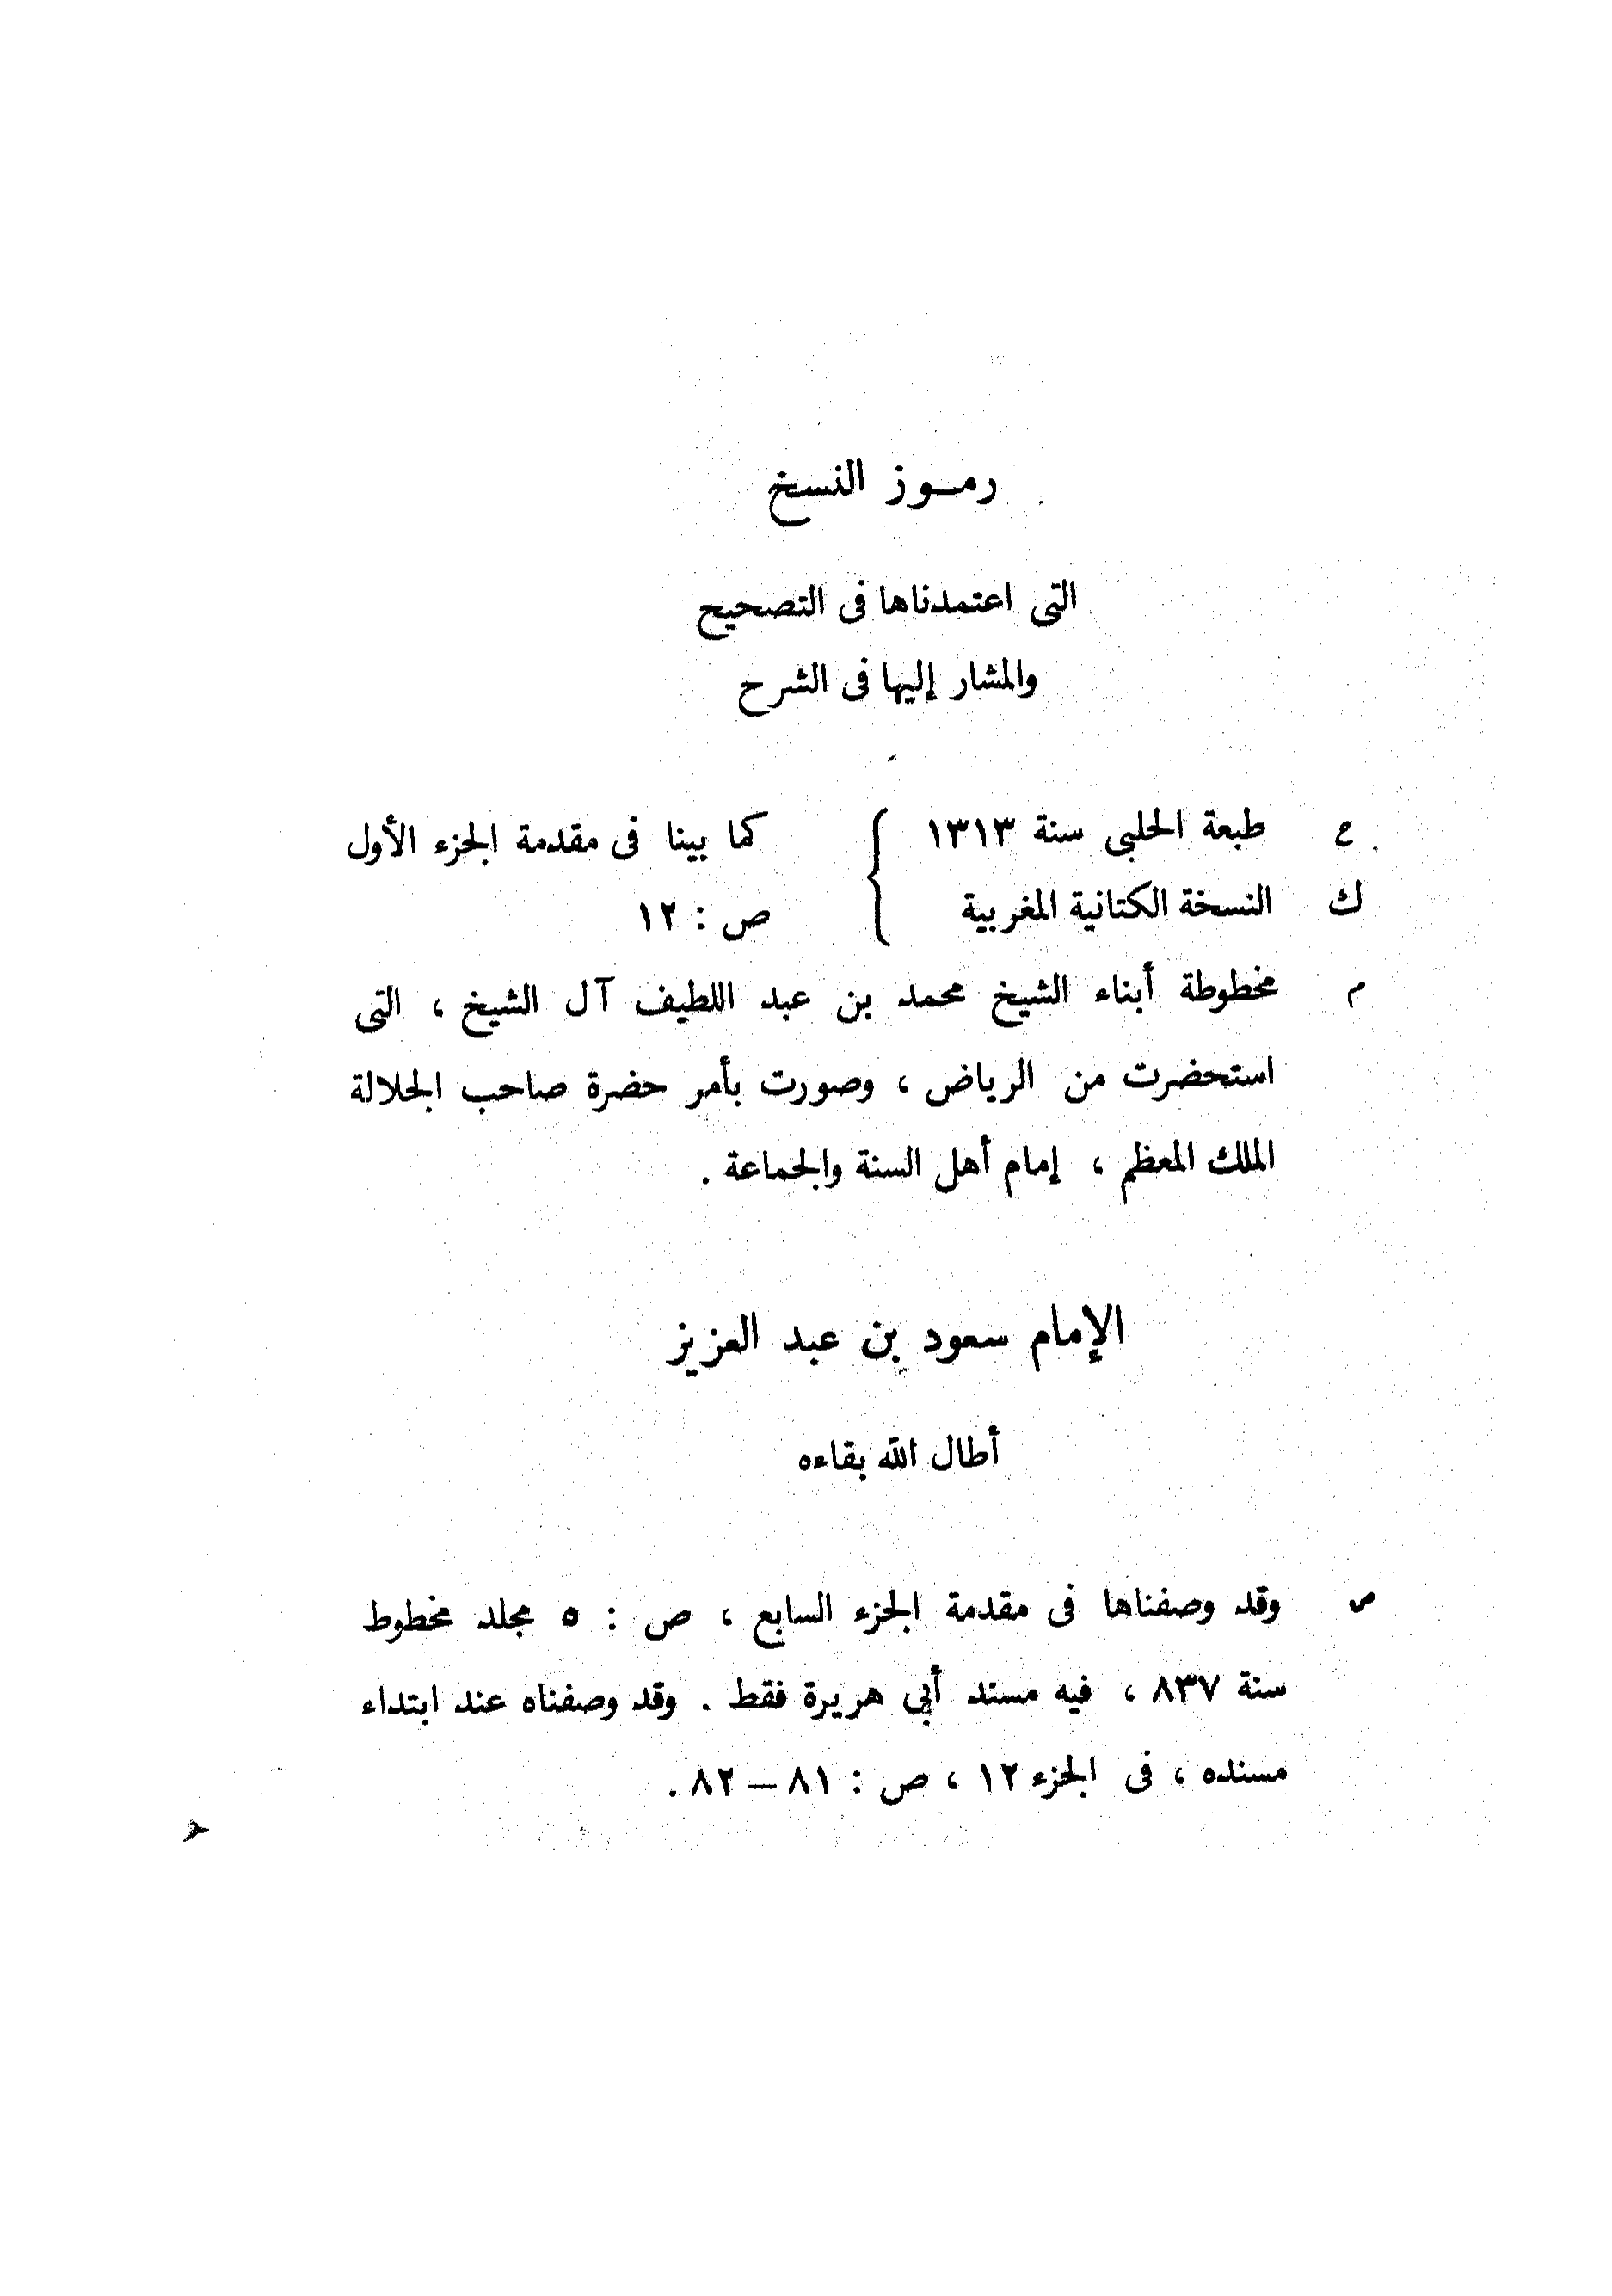 رمـوز النسخ
التى اعتمدناها فى التصحيح
والمشار إليها فى الشرح
ح طبعة الحلبى سنة ١٣١٣ } كما بينا فى مقدمة الجزء الأول
ك النسخة الكتانية المغربية } ص : ١٢
م مخطوطة أبناء الشيخ محمد بن عبد اللطيف آل الشيخ ، التى
استحضرت من الرياض ، وصورت بأمر حضرة صاحب الجلالة
الملك المعظم ، إمام أهل السنة والجماعة .
الإمام سعود بن عبد العزيز
أطال الله بقاءه
ص وقد وصفناها فى مقدمة الجزء السابع ، ص : ٥ مجلد مخطوط
سنة ٨٣٧ ، فيه مسند أبى هريرة فقط . وقد وصفناه عند ابتداء
مسنده ، فى الجزء ١٢ ، ص : ٨١ – ٨٢ .